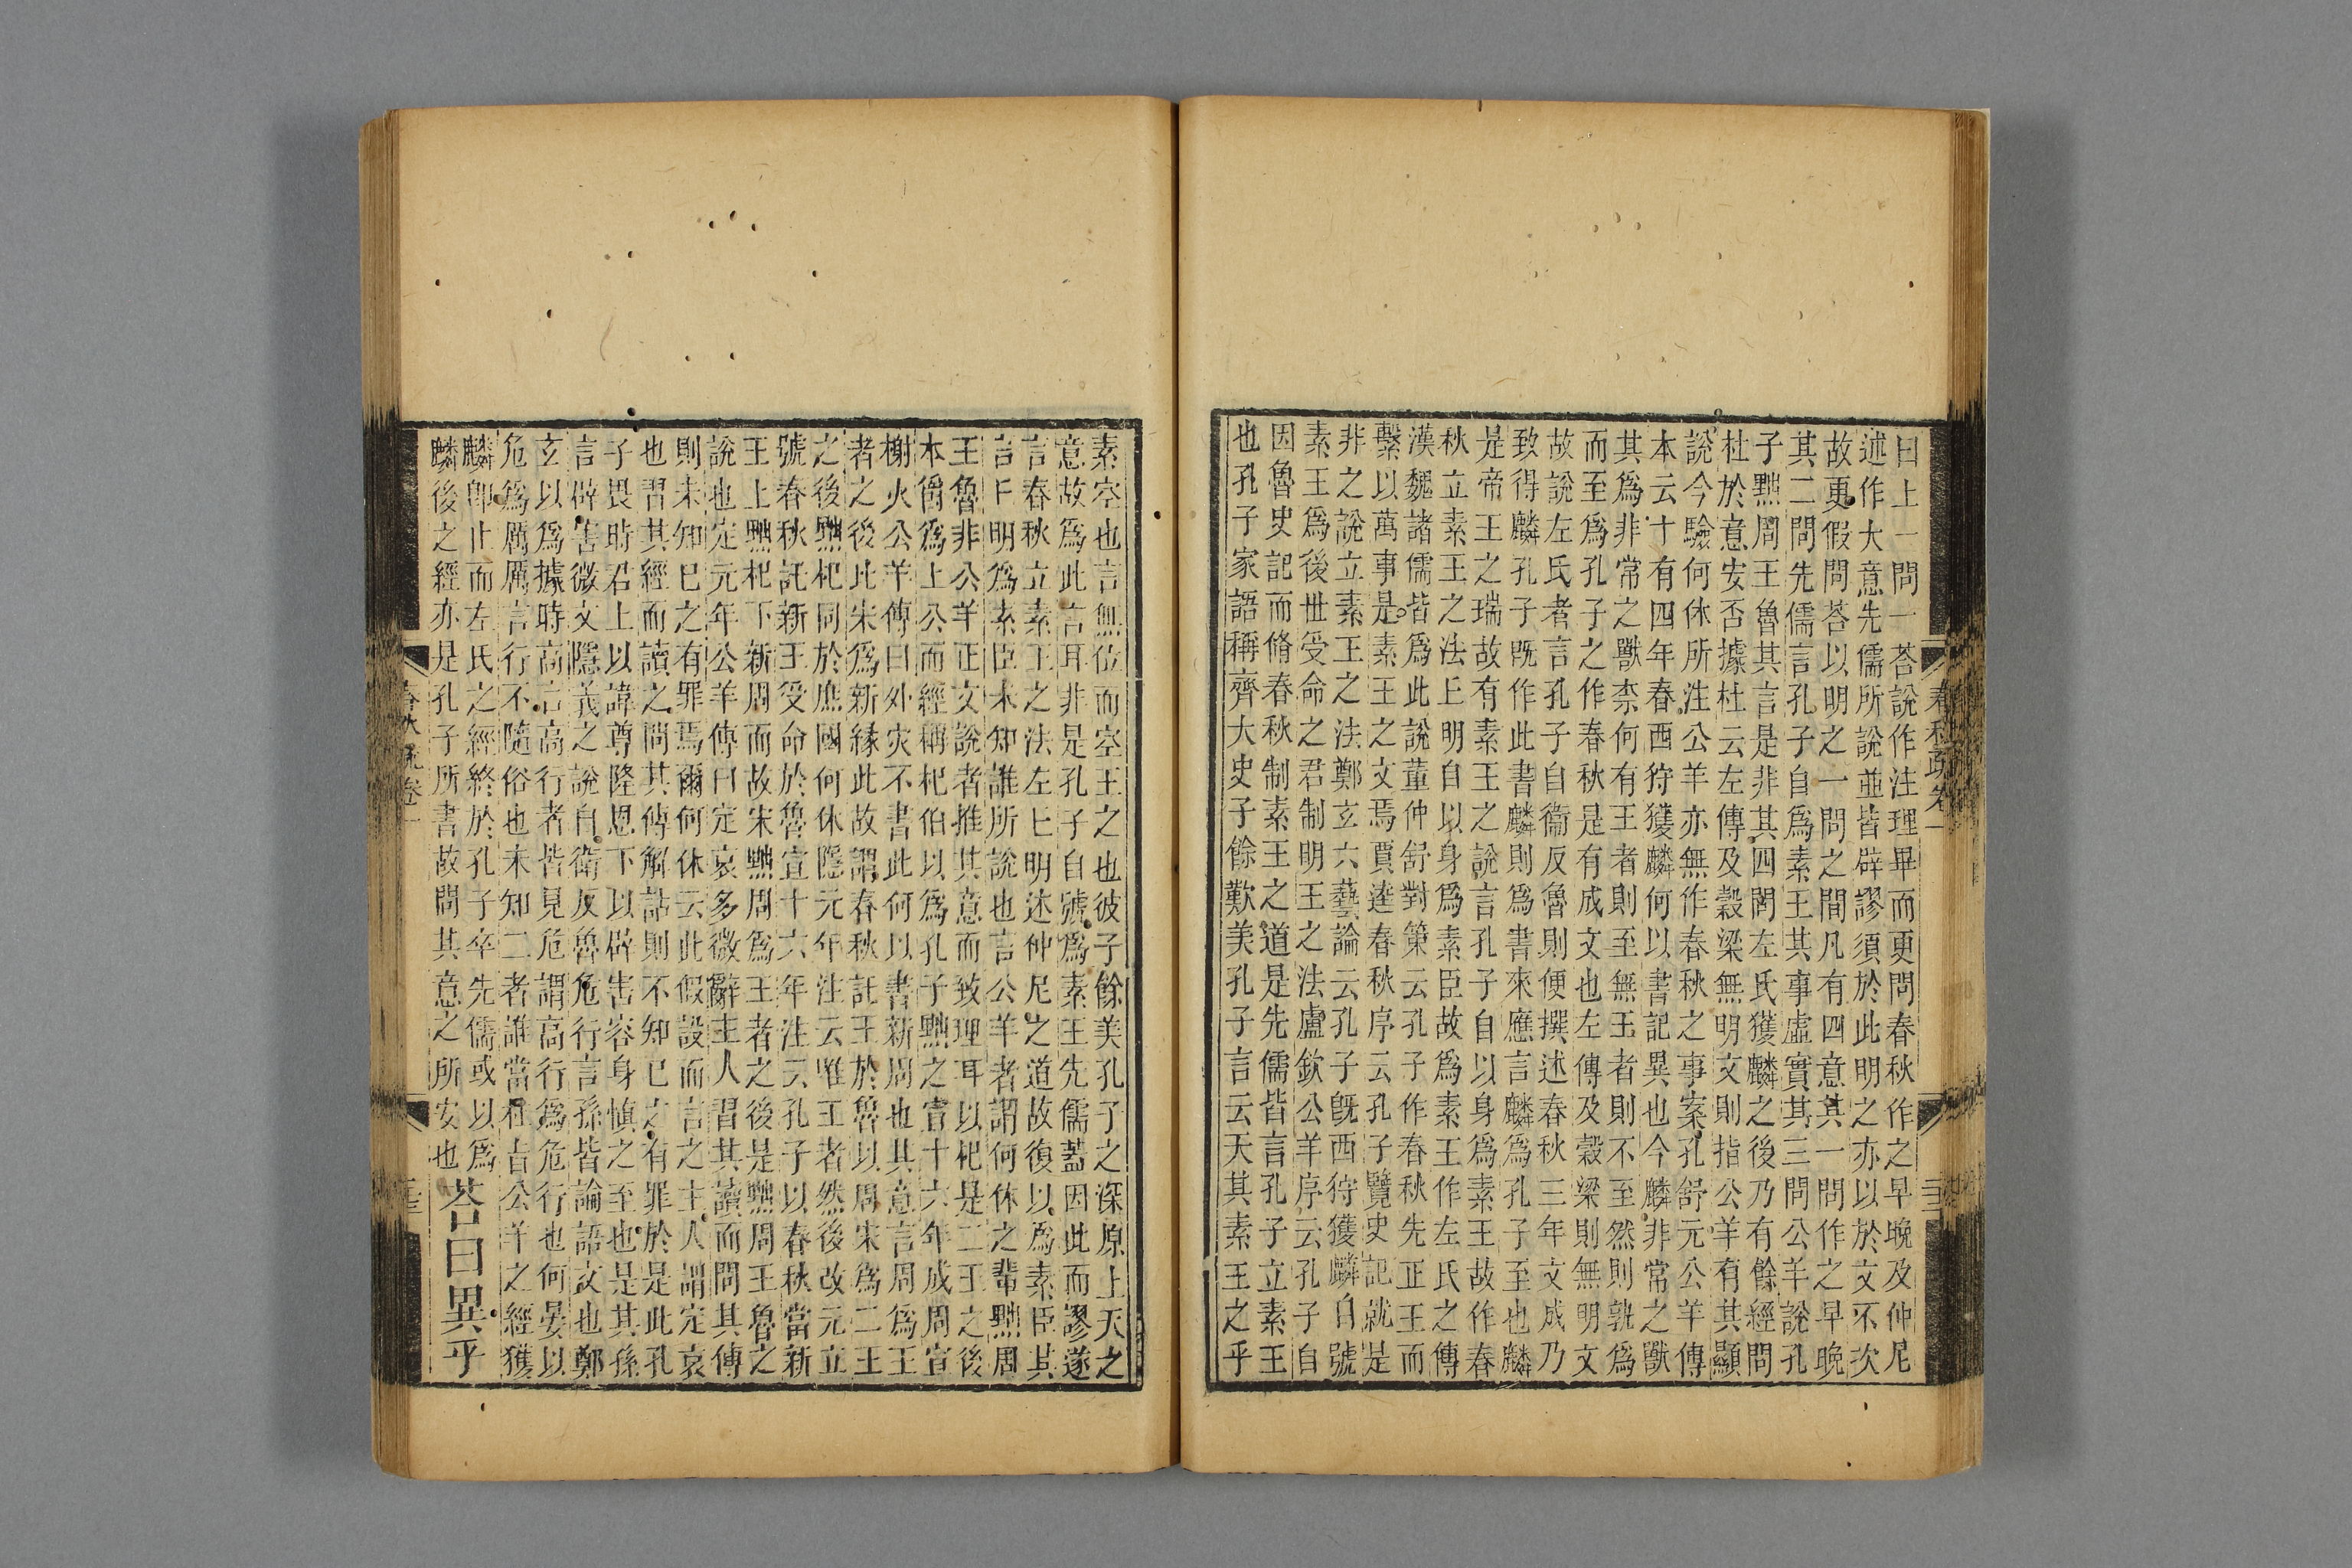 曰上一問一荅說作注理畢而更問春秋作之早晚及仲尼
述作大意先儒所說並皆辟謬須於此明之亦以於文不次
故更假問荅以明之一問之間凡有四意其一問作之早晚
其二問先儒言孔子自爲素王其事虛實其三問公羊說孔
子黜周王魯其言是非其四問左氏獲麟之後乃有餘經問
杜於意安否據杜云左傳及穀梁無明文則指公羊有其顯
說今驗何休所注公羊亦無作春秋之事案孔舒元公羊傳
本云十有四年春西狩獲麟何以書記異也今麟非常之獸
其爲非常之獸柰何有王者則至無王者則不至然則孰爲
而至爲孔子之作春秋是有成文也左傳及穀梁則無明文
故說左氏者言孔子自衞反魯則便撰述春秋三年文成乃
致得麟孔子旣作此書麟則爲書來應言麟爲孔子至也麟
是帝王之瑞故有素王之說言孔子自以身爲素王故作春
秋立素王之法丘明自以身爲素臣故爲素王作左氏之傳
漢魏諸儒皆爲此說董仲舒對策云孔子作春秋先正王而
繫以萬事是素王之文焉賈逵春秋序云孔子覽史記就是
非之說立素王之法鄭玄六藝論云孔子旣西狩獲麟自號
素王爲後世受命之君制明王之法盧欽公羊序云孔子自
因魯史記而脩春秋制素王之道是先儒皆言孔子立素王
也孔子家語稱齊大史子餘歎美孔子言云天其素王之乎
素空也言無位而空王之也彼子餘美孔子之深原上天之
意故爲此言耳非是孔子自號爲素王先儒蓋因此而謬遂
言春秋立素王之法左丘明述仲尼之道故復以爲素臣其
言丘明爲素臣未知誰所說也言公羊者謂何休之輩黜周
王魯非公羊正文說者推其意而致理耳以杞是二王之後
本爵爲上公而經稱杞伯以爲孔子黜之宣十六年成周宣
榭火公羊傳曰外災不書此何以書新周也其意言周爲王
者之後比宋爲新緣此故謂春秋託王於魯以周宋爲二王
之後黜杞同於庶國何休隱元年注云唯王者然後改元立
號春秋託新王受命於魯宣十六年注云孔子以春秋當新
王上黜杞下新周而故宋黜周爲王者之後是黜周王魯之
說也定元年公羊傳曰定哀多微辭主人習其讀而問其傳
則未知己之有罪焉爾何休云此假設而言之主人謂定哀
也習其經而讀之問其傳解詁則不知己之有罪於是此孔
子畏時君上以諱尊隆恩下以辟害容身愼之至也是其孫
言辟害微文隱義之說自衛反魯危行言孫皆論語文也鄭
玄以爲據時高言高行者皆見危謂高行爲危行也何晏以
危爲厲厲言行不隨俗也未知二者誰當杜旨公羊之經獲
麟即止而左氏之經終於孔子卒先儒或以爲
麟後之經亦是孔子所書故問其意之所安也荅曰異乎
春秋疏卷一